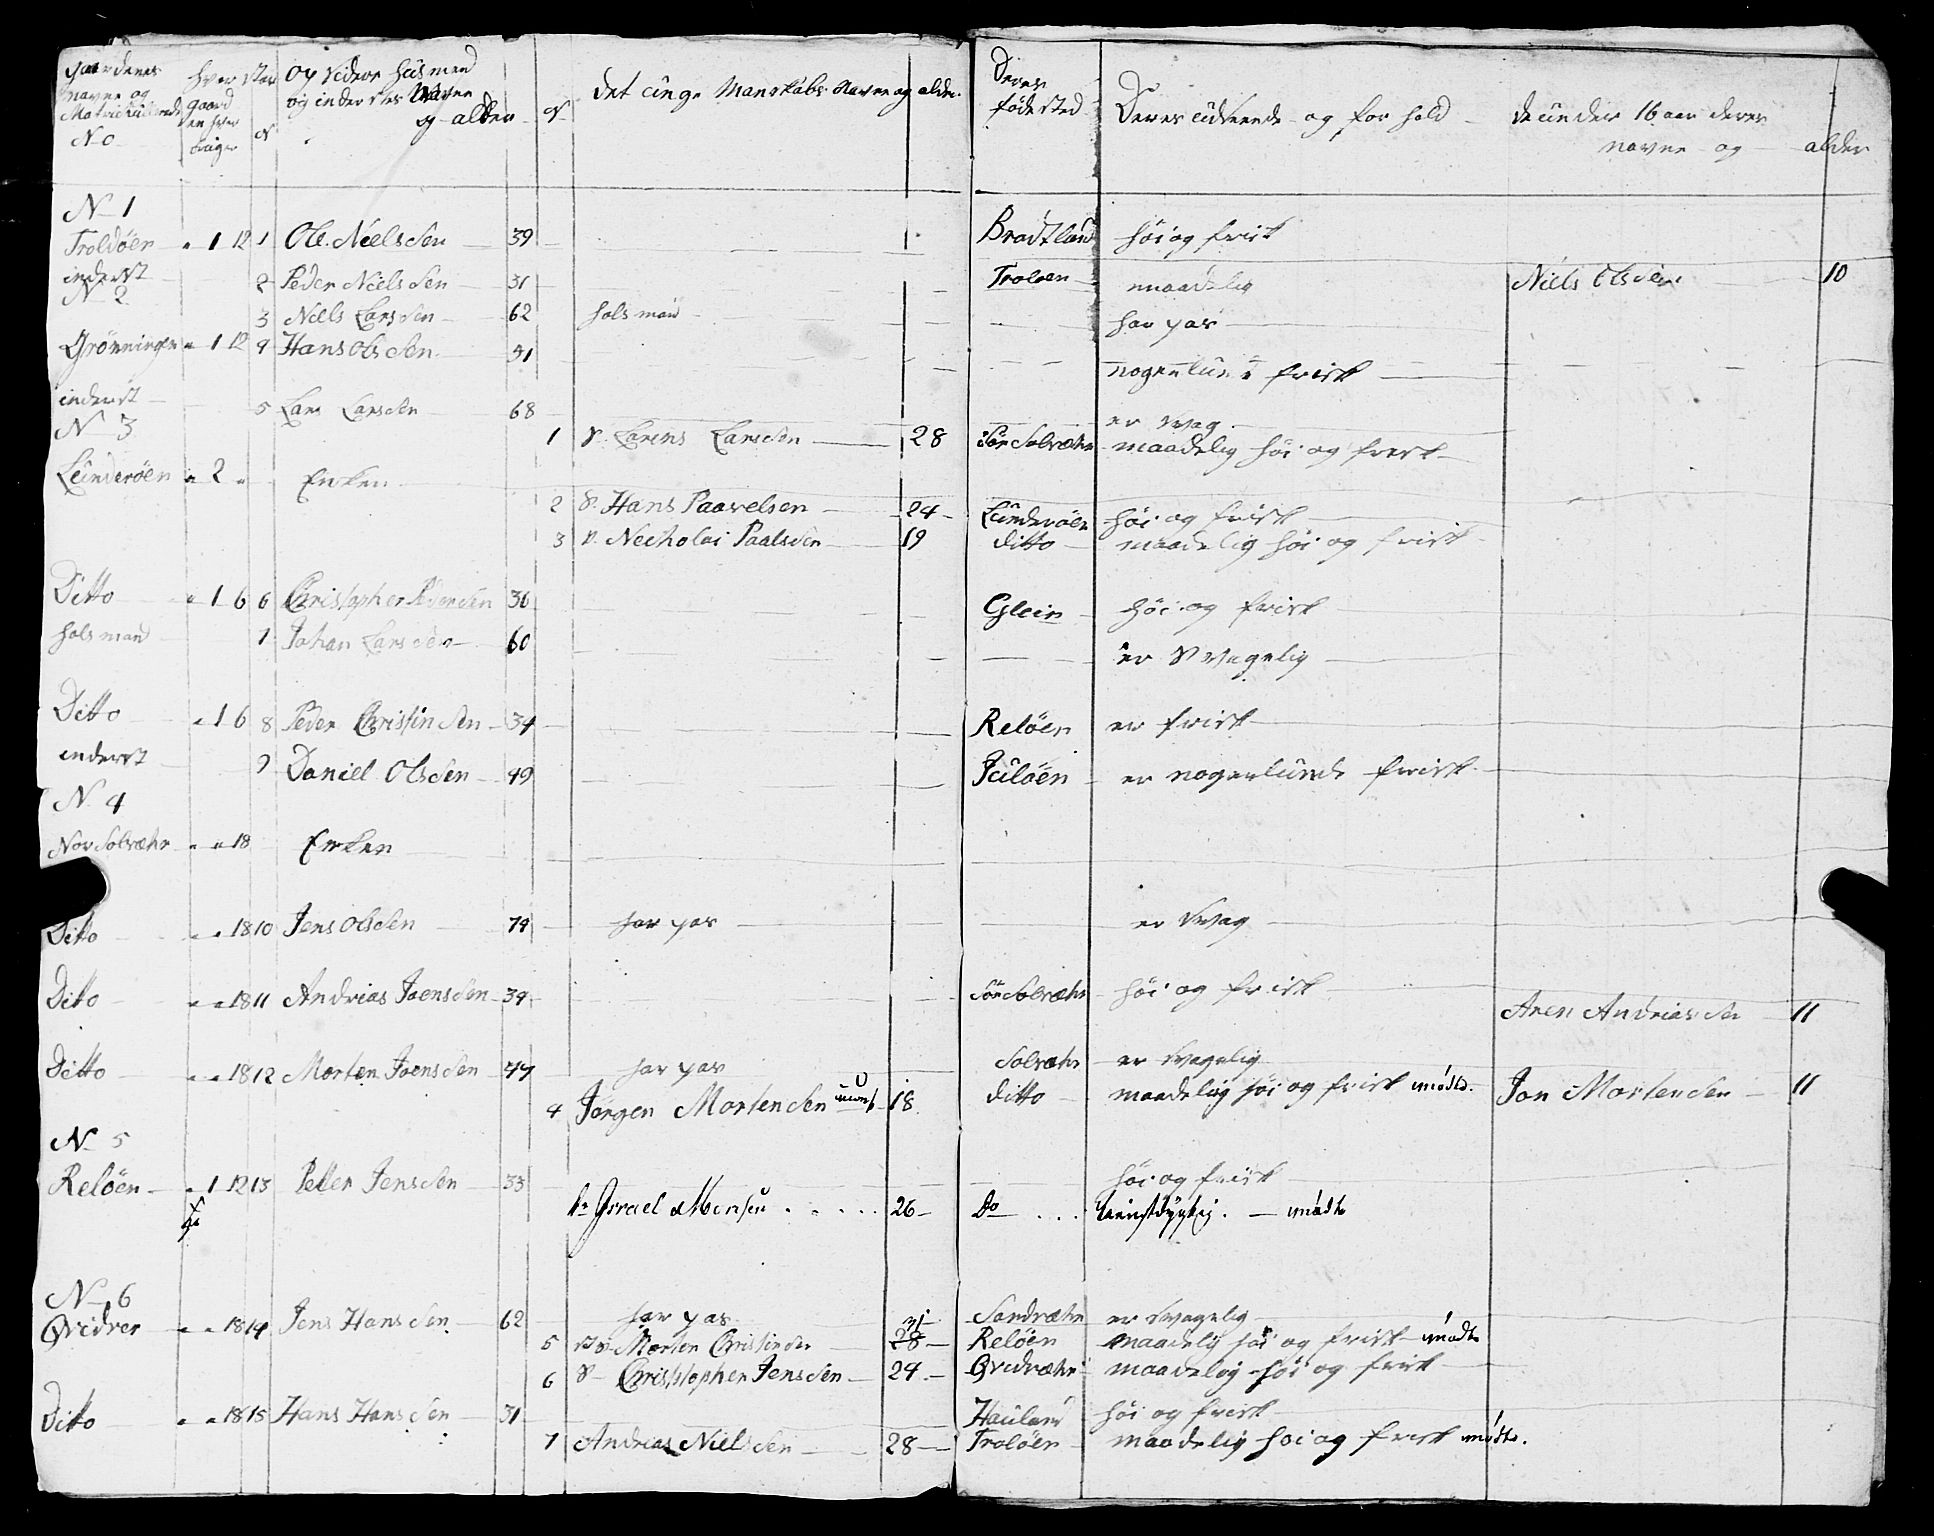 Gaardenes navne og Matricullerede No
hver gaard en hver bruger
N
Opsidere husmend og inderstes Navne og alder
N
det unge Manskabs Navne og alder
Deres fødested
Deres udseende og forhold
de under 16 aar deres navne og alder
N 1
Troldöen " 1 12 1 Ole Nielssen 39 Bradtland höi og frisk
inderst 2 Peder Nielssen 31 Troloen maadelig Niels Olssen 10
N 2
3 Niels Larssen 62 holsmand har pas
Grönningen " 1 12 4 Hans Olssen 41 nogenlunde frisk
inderst 5 Lars Larssen 68 er svag
N 3
1 S. Larens Larssen 28 Sör Solvæhr maadelig höi og frisk
Lunderöen " 2 " Enken
2 S. Hans Paavelsen 24 Lunderöen höi og frisk
3 S. Necholai Paalssen 19 ditto maadelig höi og frisk
Ditto " 1 6 6 Christopher Pedersen 36 Glein höi og frisk
holsmand 7 Johan Larssen 60 er Svagelig
Ditto " 1 6 8 Peder Christinsen 34 Relöen er frisk
inderst 9 Daniel Olssen 49 Julöen er nogenlunde frisk
N 4
Nor Solvæhr " " 18 Enken
Ditto " " 18 10 Jens Olssen 74 har pas er svag
Ditto " " 18 11 Andrias Joenssen 34 Sör Solvæhr höi og frisk
Aren Andriassen 11
Ditto " " 18 12 Morten Joenssen 44 har pas Solvæhr er svagelig
4 Jörgen Mortensen 18 ditto maadelig höi og frisk mödte. Jon Mortensen 11
N 5
Relöen " 1 12 13 Peter Jenssen 33 höi og frisk
Israel Monsen 26 Do tienstdygtig. mödte
N 6
Qvidver " " 18 14 Jens Hanssen 62 har pas Sandvæhr er svagelig
31
5 Morten Christinsen 28 Relöen maadelig höi og frisk mödte
6 S Christopher Jenssen 24 Qvidvæhr maadelig höi og frisk
Ditto " " 18 15 Hans Hanssen 31 Hauland höi og frisk
7 Andrias Nielssen 28 Trolöen maadelig höi og frisk mödte.